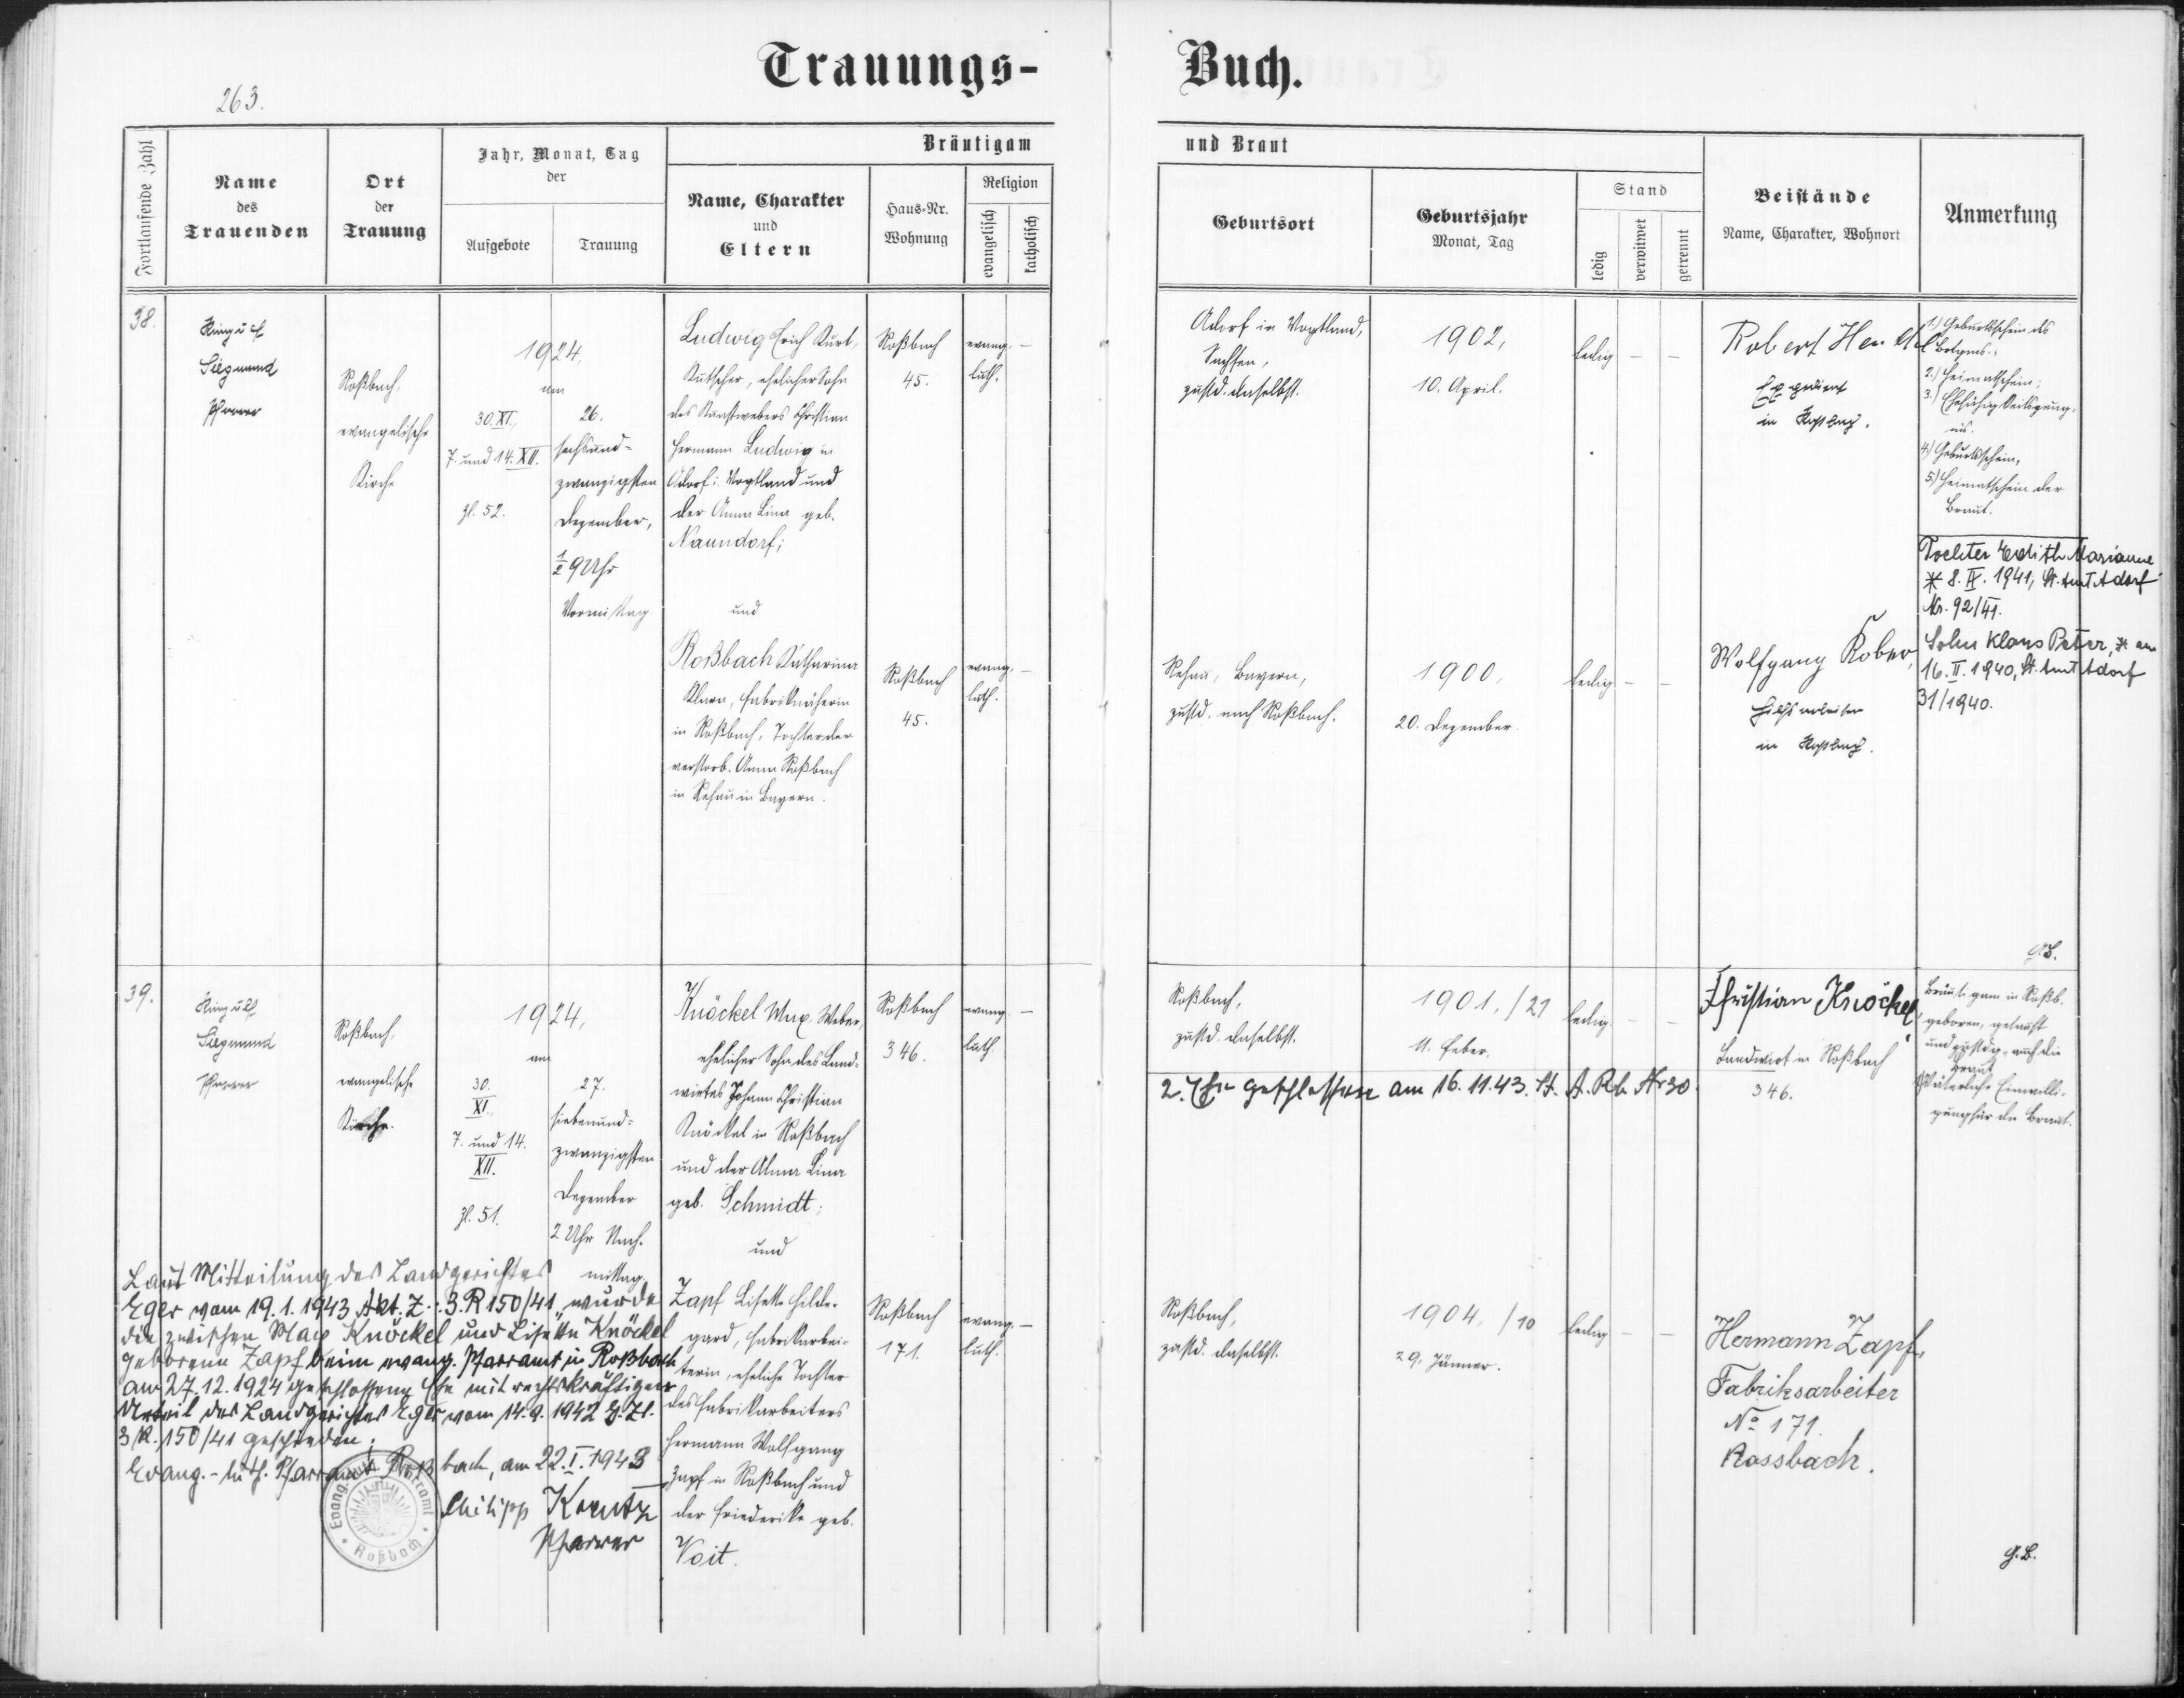 Trauungs-
Buch.
263.
Fortlaufende Zahl
Name
des
Trauenden
Ort
der
Trauung
Jahr, Monat, Tag
der
Aufgebote
Trauung
Bräutigam
Name, Charakter
und
Eltern
Haus-Nr.
Wohnung
Religion
evangelisch
katholisch
und Braut
Geburtsort
Geburtsjahr
Monat, Tag
Stand
ledig
verwitwet
getrennt
Beistände
Name, Charakter, Wohnort
Anmerkung
38.
Siegmund
Pfarrer
Roßbach,
evangelische
Kirche
1924,
am
30. XI.,
7. und 14. XII.
Zl. 52.
26.
sechsund-
zwanzigsten
Dezember,
½ 9 Uhr
Vormittag
Ludwig Erich Kurt,
Kutscher, ehelicher Sohn
des Kunstwebers Christian
Hermann Ludwig in
Adorf i. Vogtland und
der Anna Lina geb.
Naundorf;
und
Roßbach Katharina
Klara, Fabriknäherin
in Roßbach, Tochter der
verstorb. Anna Roßbach
in Rehau in Bayern.
Roßbach
45.
evang.
luth.
Roßbach
45.
evang.
luth.
Adorf in Vogtland,
Sachsen,
zustd. daselbst.
1902,
10. April.
ledig
Rehau, Bayern,
zustd. nach Roßbach.
1900,
20. Dezember.
ledig
Robert Henkel
Expedient
in Roßbach.
Wolfgang Kober,
Hilfsarbeiter
in Roßbach.
1.) Geburtsschein des
Brtgms.;
2.) Heimatschein;
3.) Ehefähigkeitszeug-
nis.
4.) Geburtsschein,
5.) Heimatschein der
Braut.
Tochter Edith Marianne
* 8. IX. 1941, St. Amt Adorf
Nr. 92/41.
Sohn Klaus Peter, * am
16. II. 1940, St. Amt Adorf
31/1940.
39.
Siegmund
Pfarrer
Roßbach,
evangelische
Kirche.
1924,
am
30.
XI.,
7. und 14.
XII.
Zl. 51.
27.
siebenund-
zwanzigsten
Dezember
2 Uhr Nach-
mittag
Knöckel Max, Weber,
ehelicher Sohn des Land-
wirtes Johann Christian
Knöckel in Roßbach
und der Alma Lina
geb. Schmidt;
und
Zapf Lisette Hilde-
gard, Fabrikarbei-
terin, eheliche Tochter
des Fabrikarbeiters
Hermann Wolfgang
Zapf in Roßbach und
der Friederike geb.
Voit.
Roßbach
346.
evang.
luth.
Roßbach
171.
evang.
luth.
Roßbach,
zustd. daselbst.
1901, /21
11. Feber.
ledig
2. Ehe geschlossen am 16.11.43. St. A. Rb. Nr 30.
Roßbach,
zustd. daselbst.
1904, /10
29. Jänner.
ledig
Christian Knöckel
Landwirt in Roßbach
346.
Hermann Zapf,
Fabriksarbeiter
No 171.
Rossbach.
Bräutigam in Roßb.
geboren, getauft
und zustdg., auch die
Braut
Väterliche Einwilli-
gung für die Braut.
G.B.
Laut Mitteilung des Landgerichtes
Eger vom 19.1.1943 Akt. Z.: 3. R 150/41 wurde
die zwischen Max Knöckel und Lisette Knöckel
geborene Zapf beim evang. Pfarramt in Roßbach
am 27.12.1924 geschlossene Ehe mit rechtskräftigem
Urteil des Landgerichtes Eger vom 14.9.1942 G. Zl.
3 R. 150/41 geschieden.
Evang.-luth. Pfarramt Roßbach, am 22. I. 1943
Philipp Kreutz
Pfarrer
Roßbach